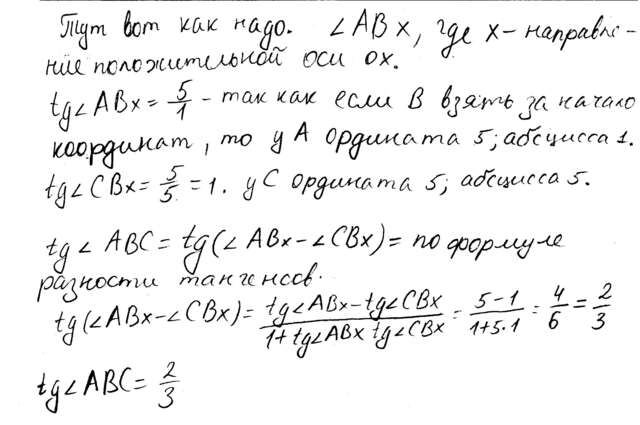 Тут вот как надо. ∠ABx, где x - направле-
ние положительной оси ox.
tg∠ABx = 5/1 - так как если B взять за начало
координат, то у A ордината 5; абсцисса 1.
tg∠CBx = 5/5 = 1. у C ордината 5; абсцисса 5.
tg∠ABC = tg(∠ABx - ∠CBx) = по формуле
разности тангенсов.
tg(∠ABx - ∠CBx) = (tg∠ABx - tg∠CBx)/(1 + tg∠ABx tg∠CBx) = (5 - 1)/(1 + 5·1) = 4/6 = 2/3
tg∠ABC = 2/3